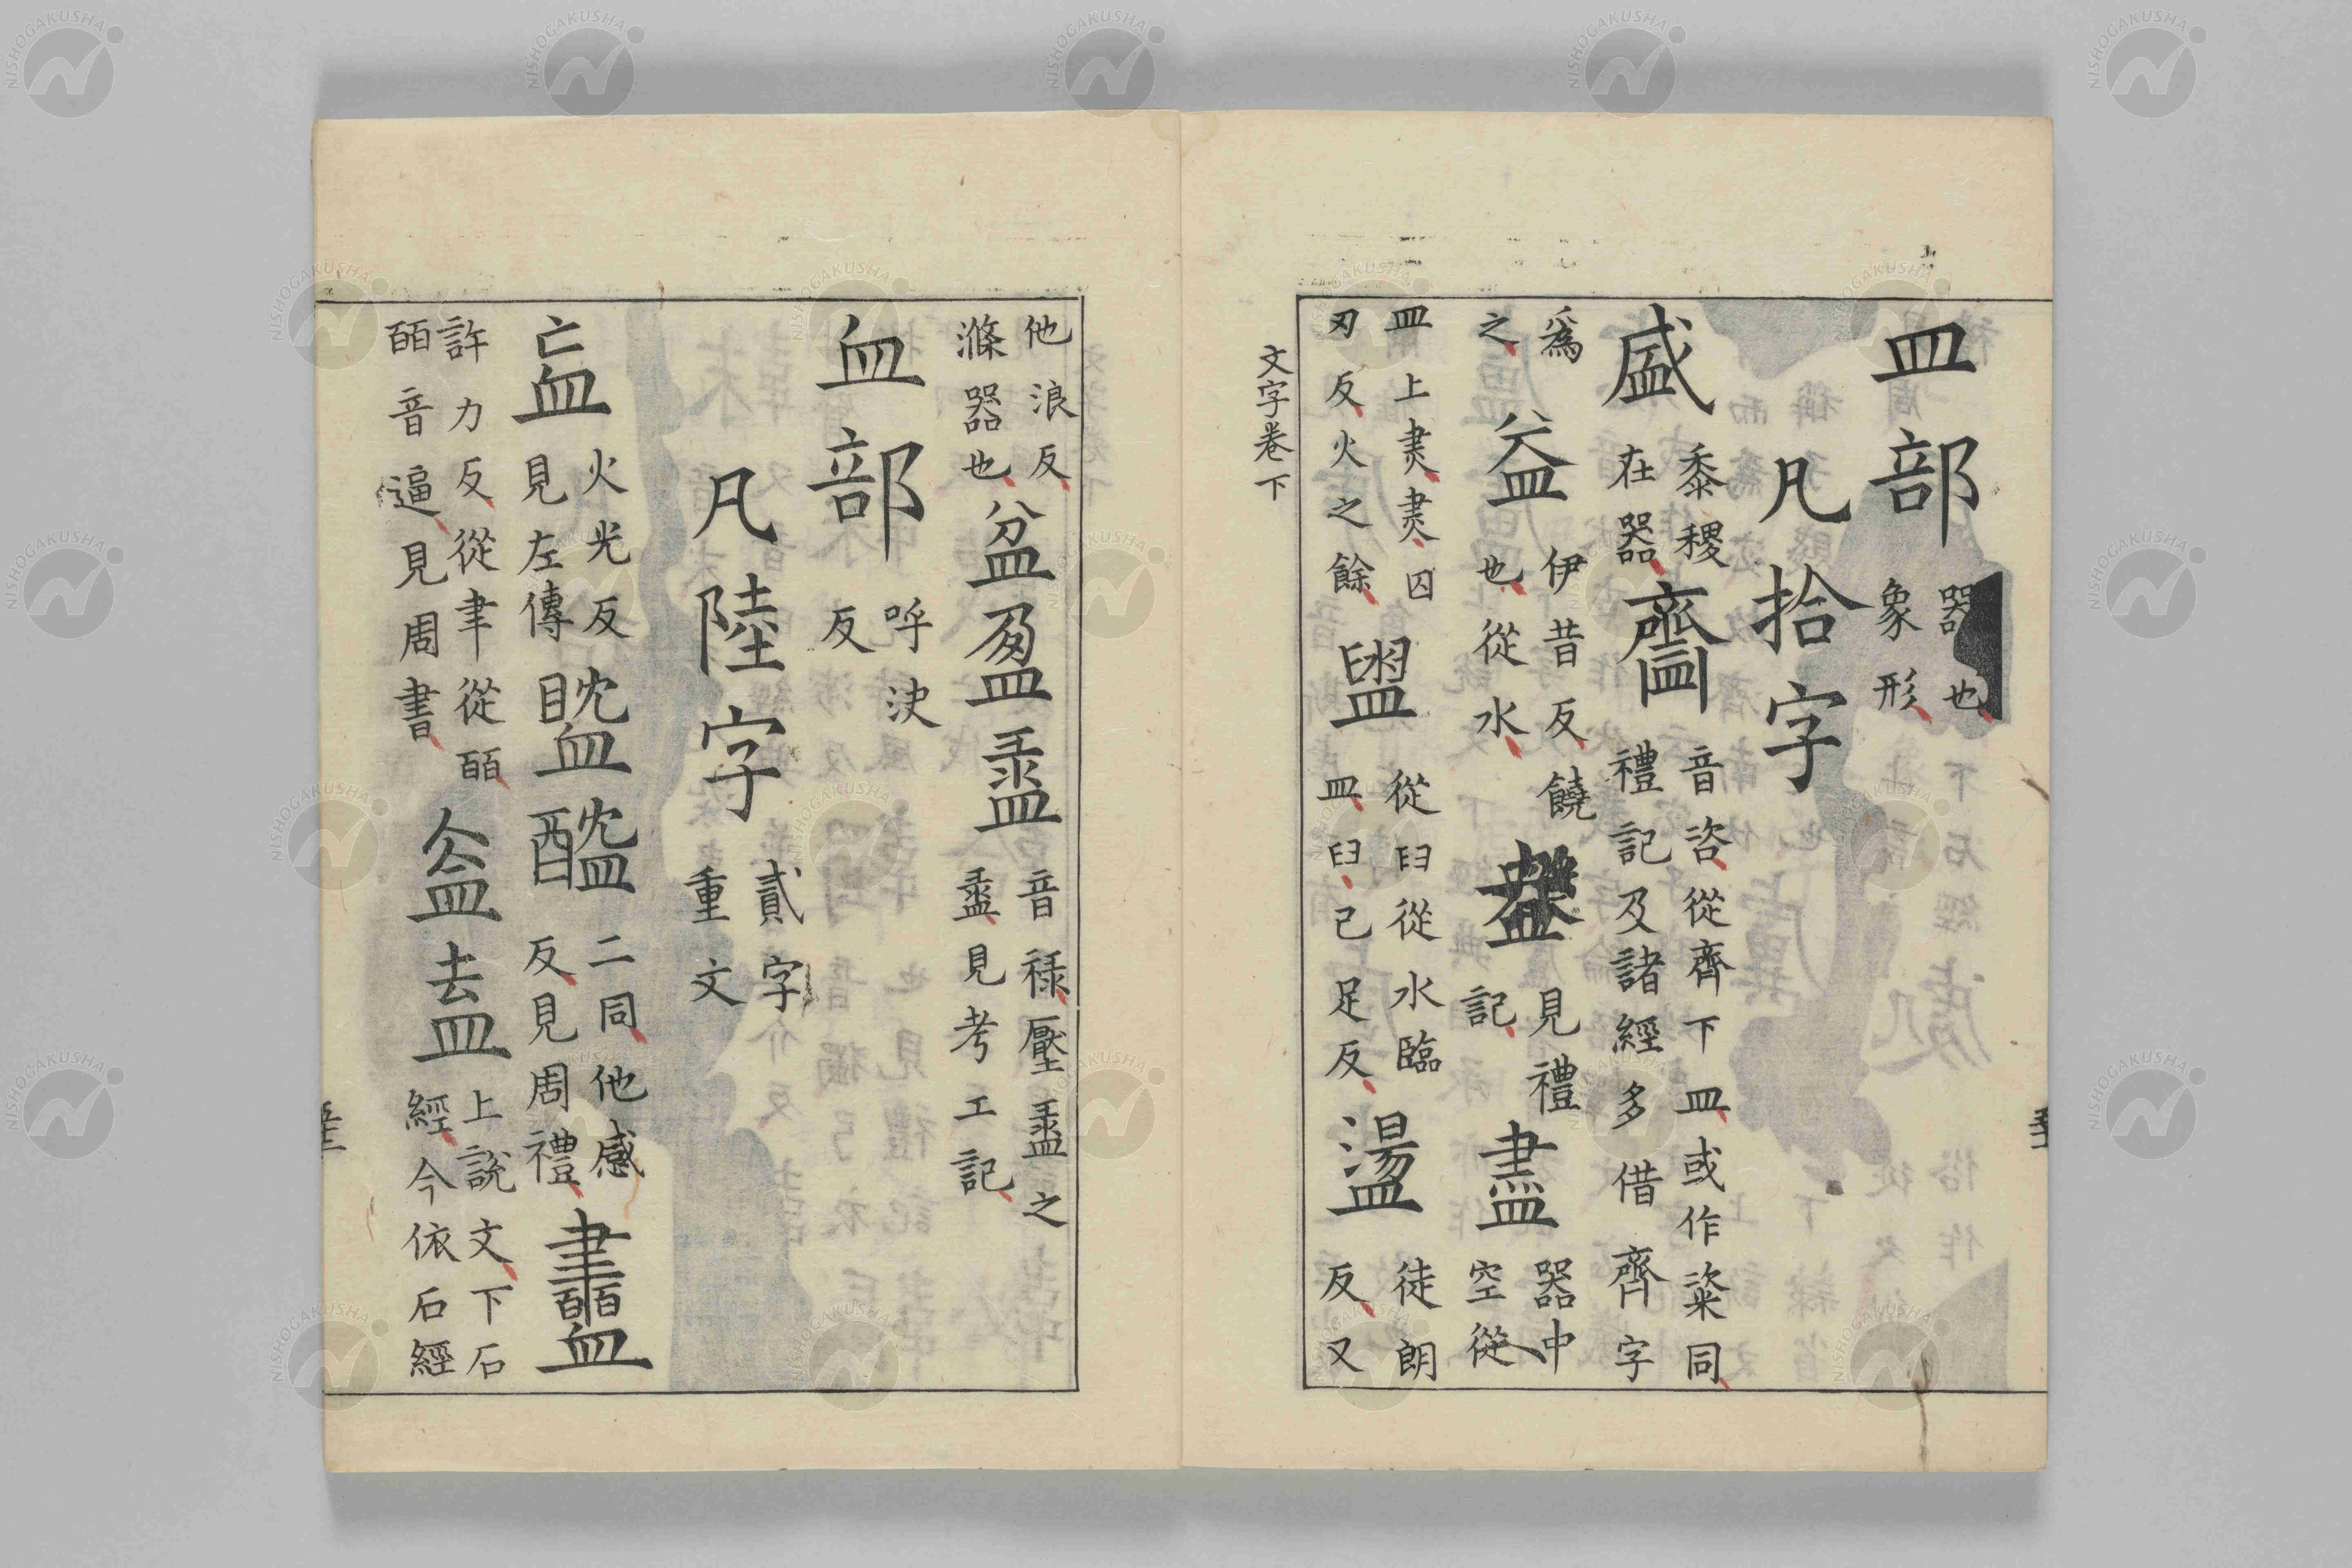 皿部器也象形
凡拾字
盛黍稷在器齍音咨從齊下皿或作粢同禮記及諸經多借齊字
爲之益伊昔反饒也從水見禮記盡器中空從
皿上㶳㶳囚刃反火之餘盥從臼從水臨皿臼己足反盪徒朗反又
文字卷下
他浪反滌器也盆盈盝音祿壓盝之盝見考工記
血部呼決反
凡陸字貳字重文
衁火光反見左傳醓二同他感反見周禮衋
許力反從聿從皕皕音逼見周書盇盍上說文下石經今依石經
NISHOGAKUSHA